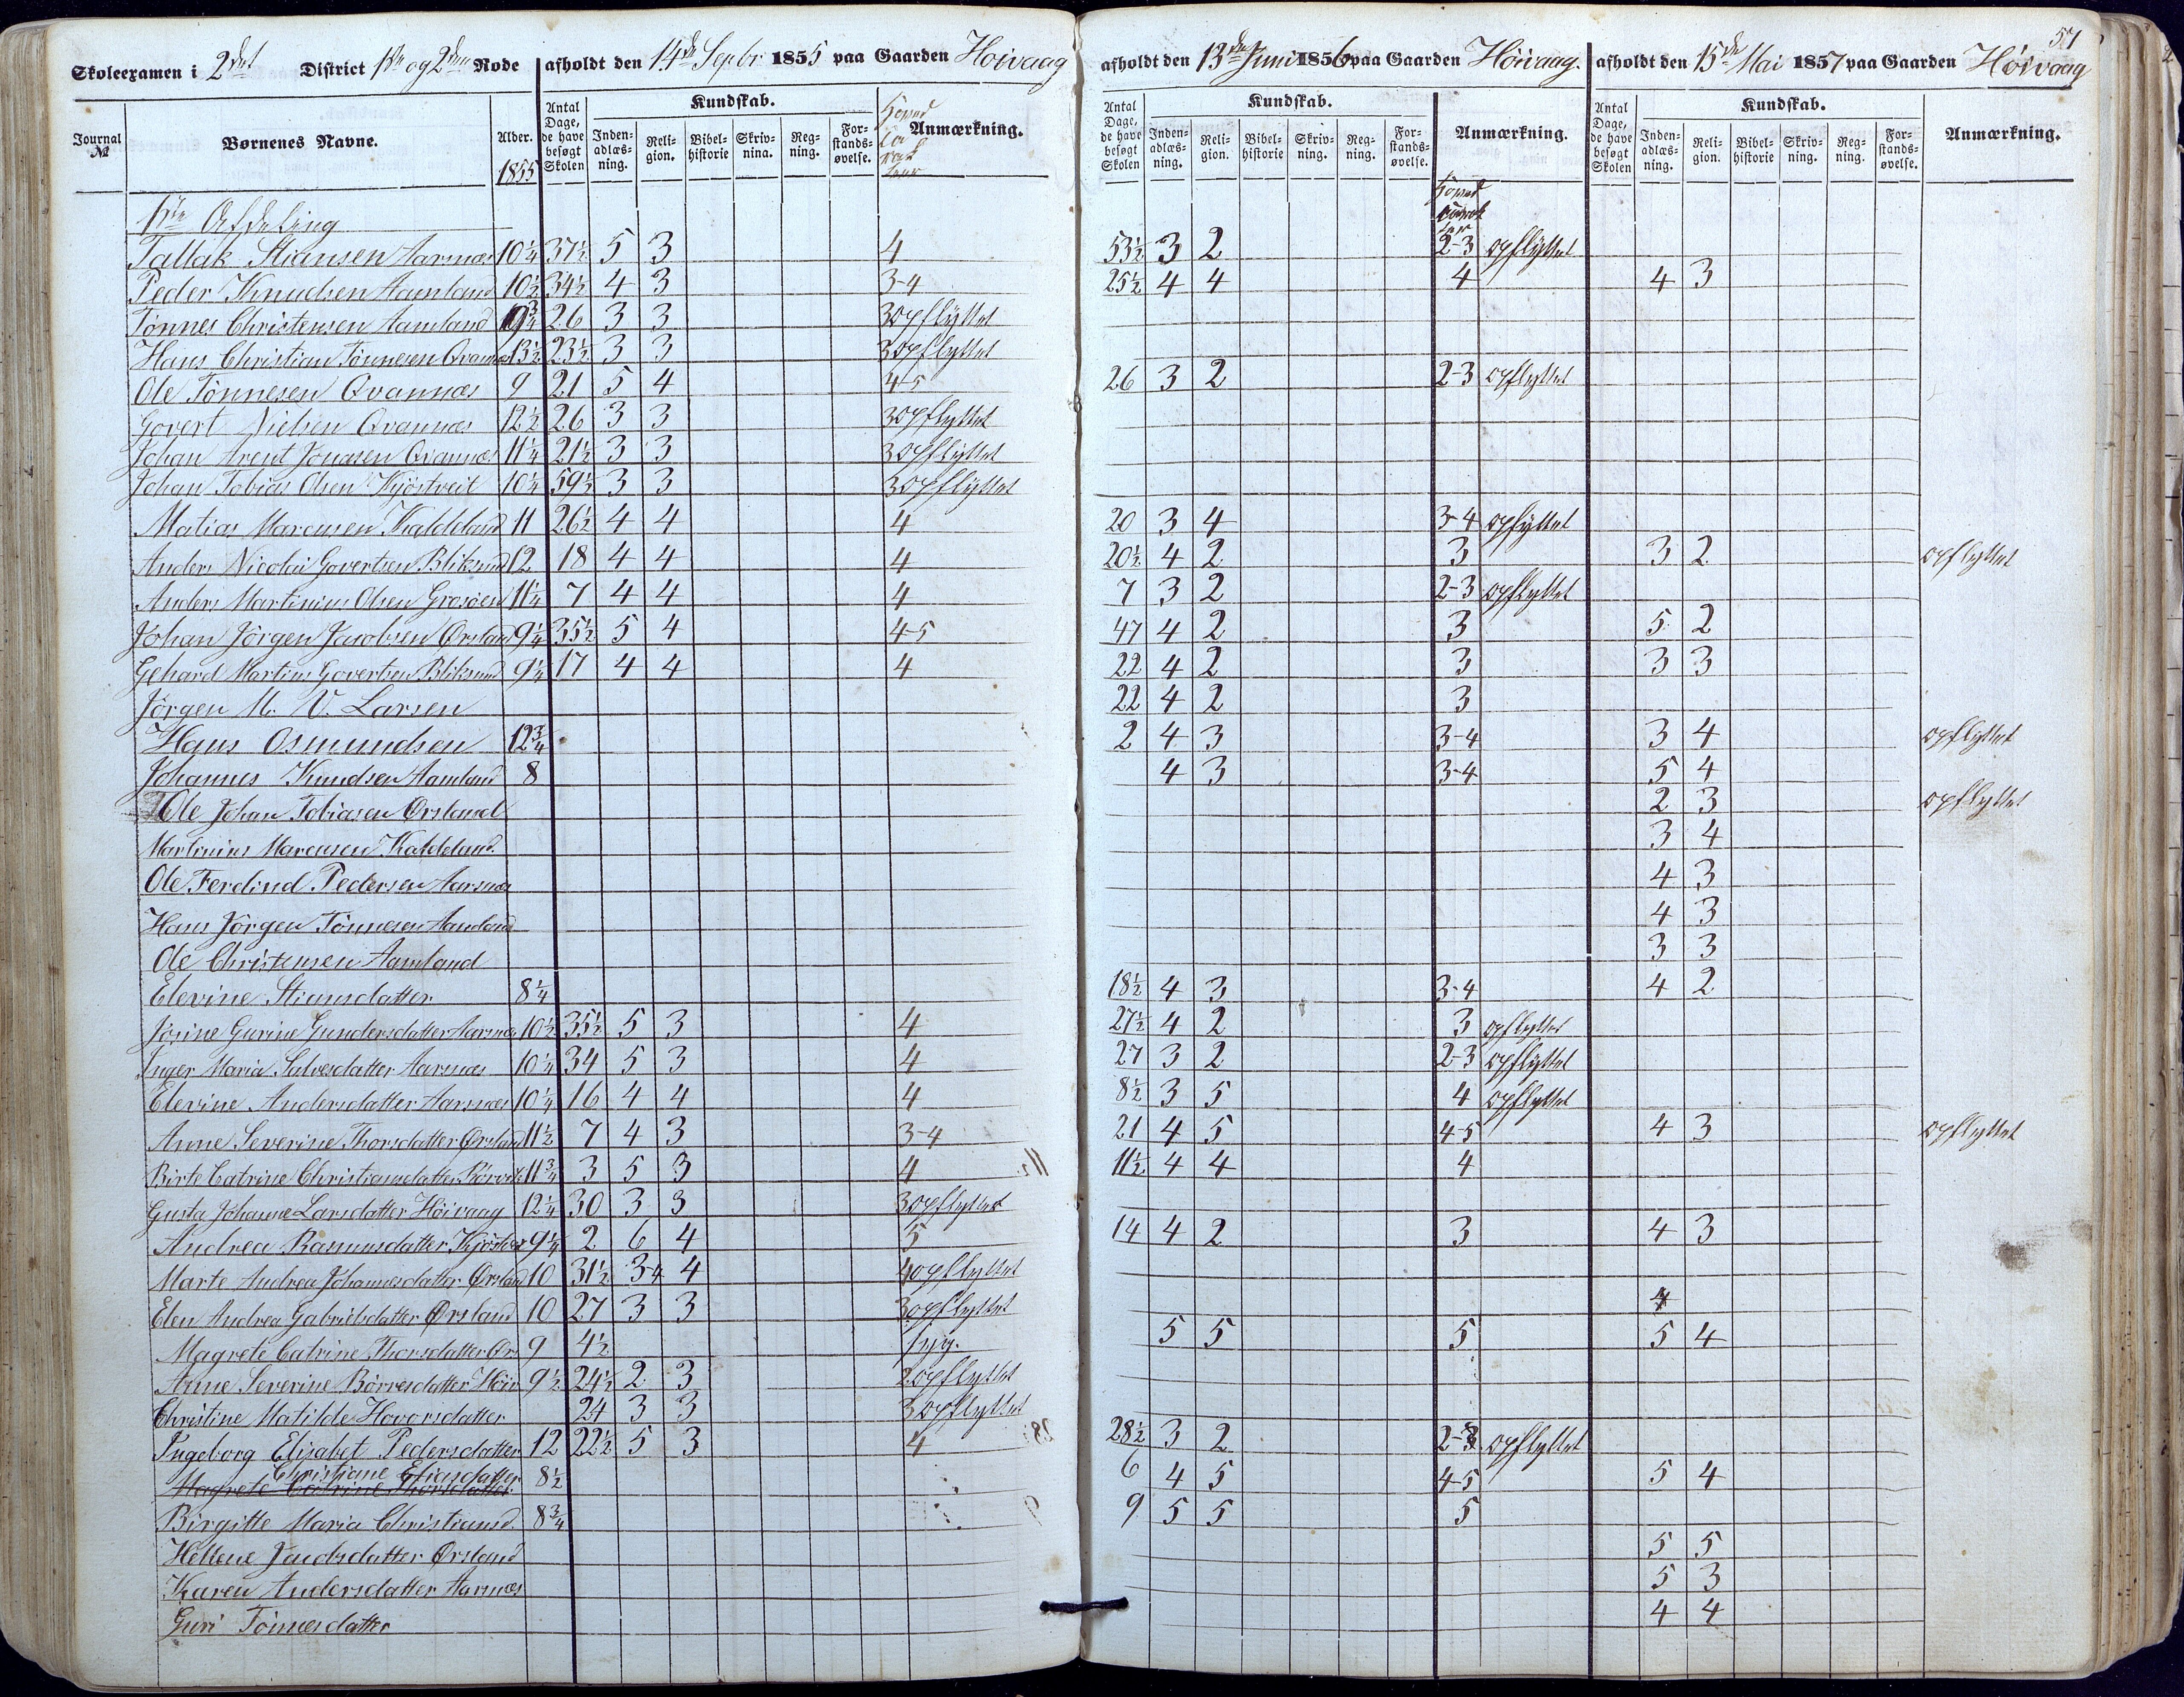 57
Skoleexamen i 2det District 1ste og 2den Rode afholdt den 14de Septbr 1855 paa Gaarden Høivaag afholdt den 13de Juni 1856 paa Gaarden Høivaag. afholdt den 15de Mai 1857 paa Gaarden Høivaag
Journal № Børnenes Navne. Alder. 1855 Antal Dage, de have besøgt Skolen Kundskab. Inden-adlæs-ning. Reli-gion. Bibel-historie Skriv-ning. Reg-ning. For-stands-øvelse. Hoved Ca rak teer Anmærkning. Antal Dage, de have besøgt Skolen Kundskab. Inden-adlæs-ning. Reli-gion. Bibel-historie Skriv-ning. Reg-ning. For-stands-øvelse. Anmærkning. Hoved Antal Dage, de have besøgt Skolen Kundskab. Inden-adlæs-ning. Reli-gion. Bibel-historie Skriv-ning. Reg-ning. For-stands-øvelse. Anmærkning.
1ste Afdeling
Tallak Stiansen Aarsnæs 10 1/4 37 1/2 5 3 4 53 1/2 3 2 2-3 opflyttet
Peder Knudsen Aamland 10 1/2 34 1/2 4 3 3-4 25 1/2 4 4 4 4 3
Tønnes Christensen Aamland 9 3/4 26 3 3 3 opflyttet
Hans Christian Tønnesen Qvannæs 13 1/2 23 1/2 3 3 3 opflyttet
Ole Tønnesen Qvannæs 9 21 5 4 4-5 26 3 2 2-3 opflyttet
Govert Nielsen Qvannæs 12 1/2 26 3 3 3 opflyttet
Johan Arent Jonasen Qvannæs 11 1/4 21 1/2 3 3 3 opflyttet
Johan Tobias Olsen Kjøstveit 10 1/4 59 1/2 3 3 3 opflyttet
Matias Marcusen Kaldeland 11 26 1/2 4 4 4 20 3 4 3-4 opflyttet
Anders Nicolai Govertsen Bliksund 12 18 4 4 4 20 1/2 4 2 3 3 2 opflyttet
Anders Martinius Olsen Grosøen 11 1/4 7 4 4 4 7 3 2 2-3 opflyttet
Johan Jörgen Jacobsen Ørsland 9 1/4 35 1/2 5 4 4-5 47 4 2 3 5 2
Gehard Martin Govertsen Bliksund 9 1/4 17 4 4 4 22 4 2 3 3 3
Jörgen M. V. Larsen 22 4 2 3
Hans Osmundsen 12 3/4 2 4 3 3-4 3 4 opflyttet
Johannes Knudsen Aamland 8 4 3 3-4 5 4
Ole Johan Tobiasen Ørsland 2 3 opflyttet
Martinius Marcusen Kaldeland 3 4
Ole Ferdind Pedersen Aarsnæs 4 3
Hans Jörgen Tönnesen Aamland 4 3
Ole Christensen Aamland 3 3
Elevine Stiansdatter 8 1/4 18 1/2 4 3 3-4 4 2
Josine Gurine Gundersdatter Aarsnæs 10 1/2 35 1/2 5 3 4 27 1/2 4 2 3 opflyttet
Inger Maria Salvesdatter Aarsnæs 10 1/4 34 5 3 4 27 3 2 2-3 opflyttet
Elevine Andersdatter Aarsnæs 10 1/4 16 4 4 4 8 1/2 3 5 4 opflyttet
Anne Severine Thorsdatter Ørsland 11 1/2 7 4 3 3-4 21 4 5 4-5 4 3 opflyttet
Birte Catrine Christiansdatter 11 3/4 3 5 3 4 11 1/2 4 4 4
Gusta Johanne Larsdatter Høivaag 12 1/4 30 3 3 3 opflyttet
Andrea Rasmusdatter 9 1/4 2 6 4 5 14 4 2 3 4 3
Marte Andrea Johannesdatter Ørsland 10 31 1/2 3-4 4 4 opflyttet
Elen Andrea Gabrielsdatter Ørsland 10 27 3 3 3 opflyttet 4
Magrete Catrine Thorsdatter Ørs 9 4 1/2 syg. 5 5 5 5 4
Anne Severine Börresdatter Høiv 9 1/2 24 1/2 2 3 2 opflyttet
Christine Matilde Hovorsdatter 24 3 3 3 opflyttet
Ingeborg Elisabet Pedersdatter 12 22 1/2 5 3 4 28 1/2 3 2 2-3 opflyttet
Christiane Eliasdatter 8 1/2 6 4 5 4-5 5 4
Magrete Catrine Thorsdatter
Birgitte Maria Christiansd. 8 3/4 9 5 5 5
Hellene Ørsland 5 5
Karen Andersdatter Aarsnæs 5 3
Guri Tönnesdatter 4 4